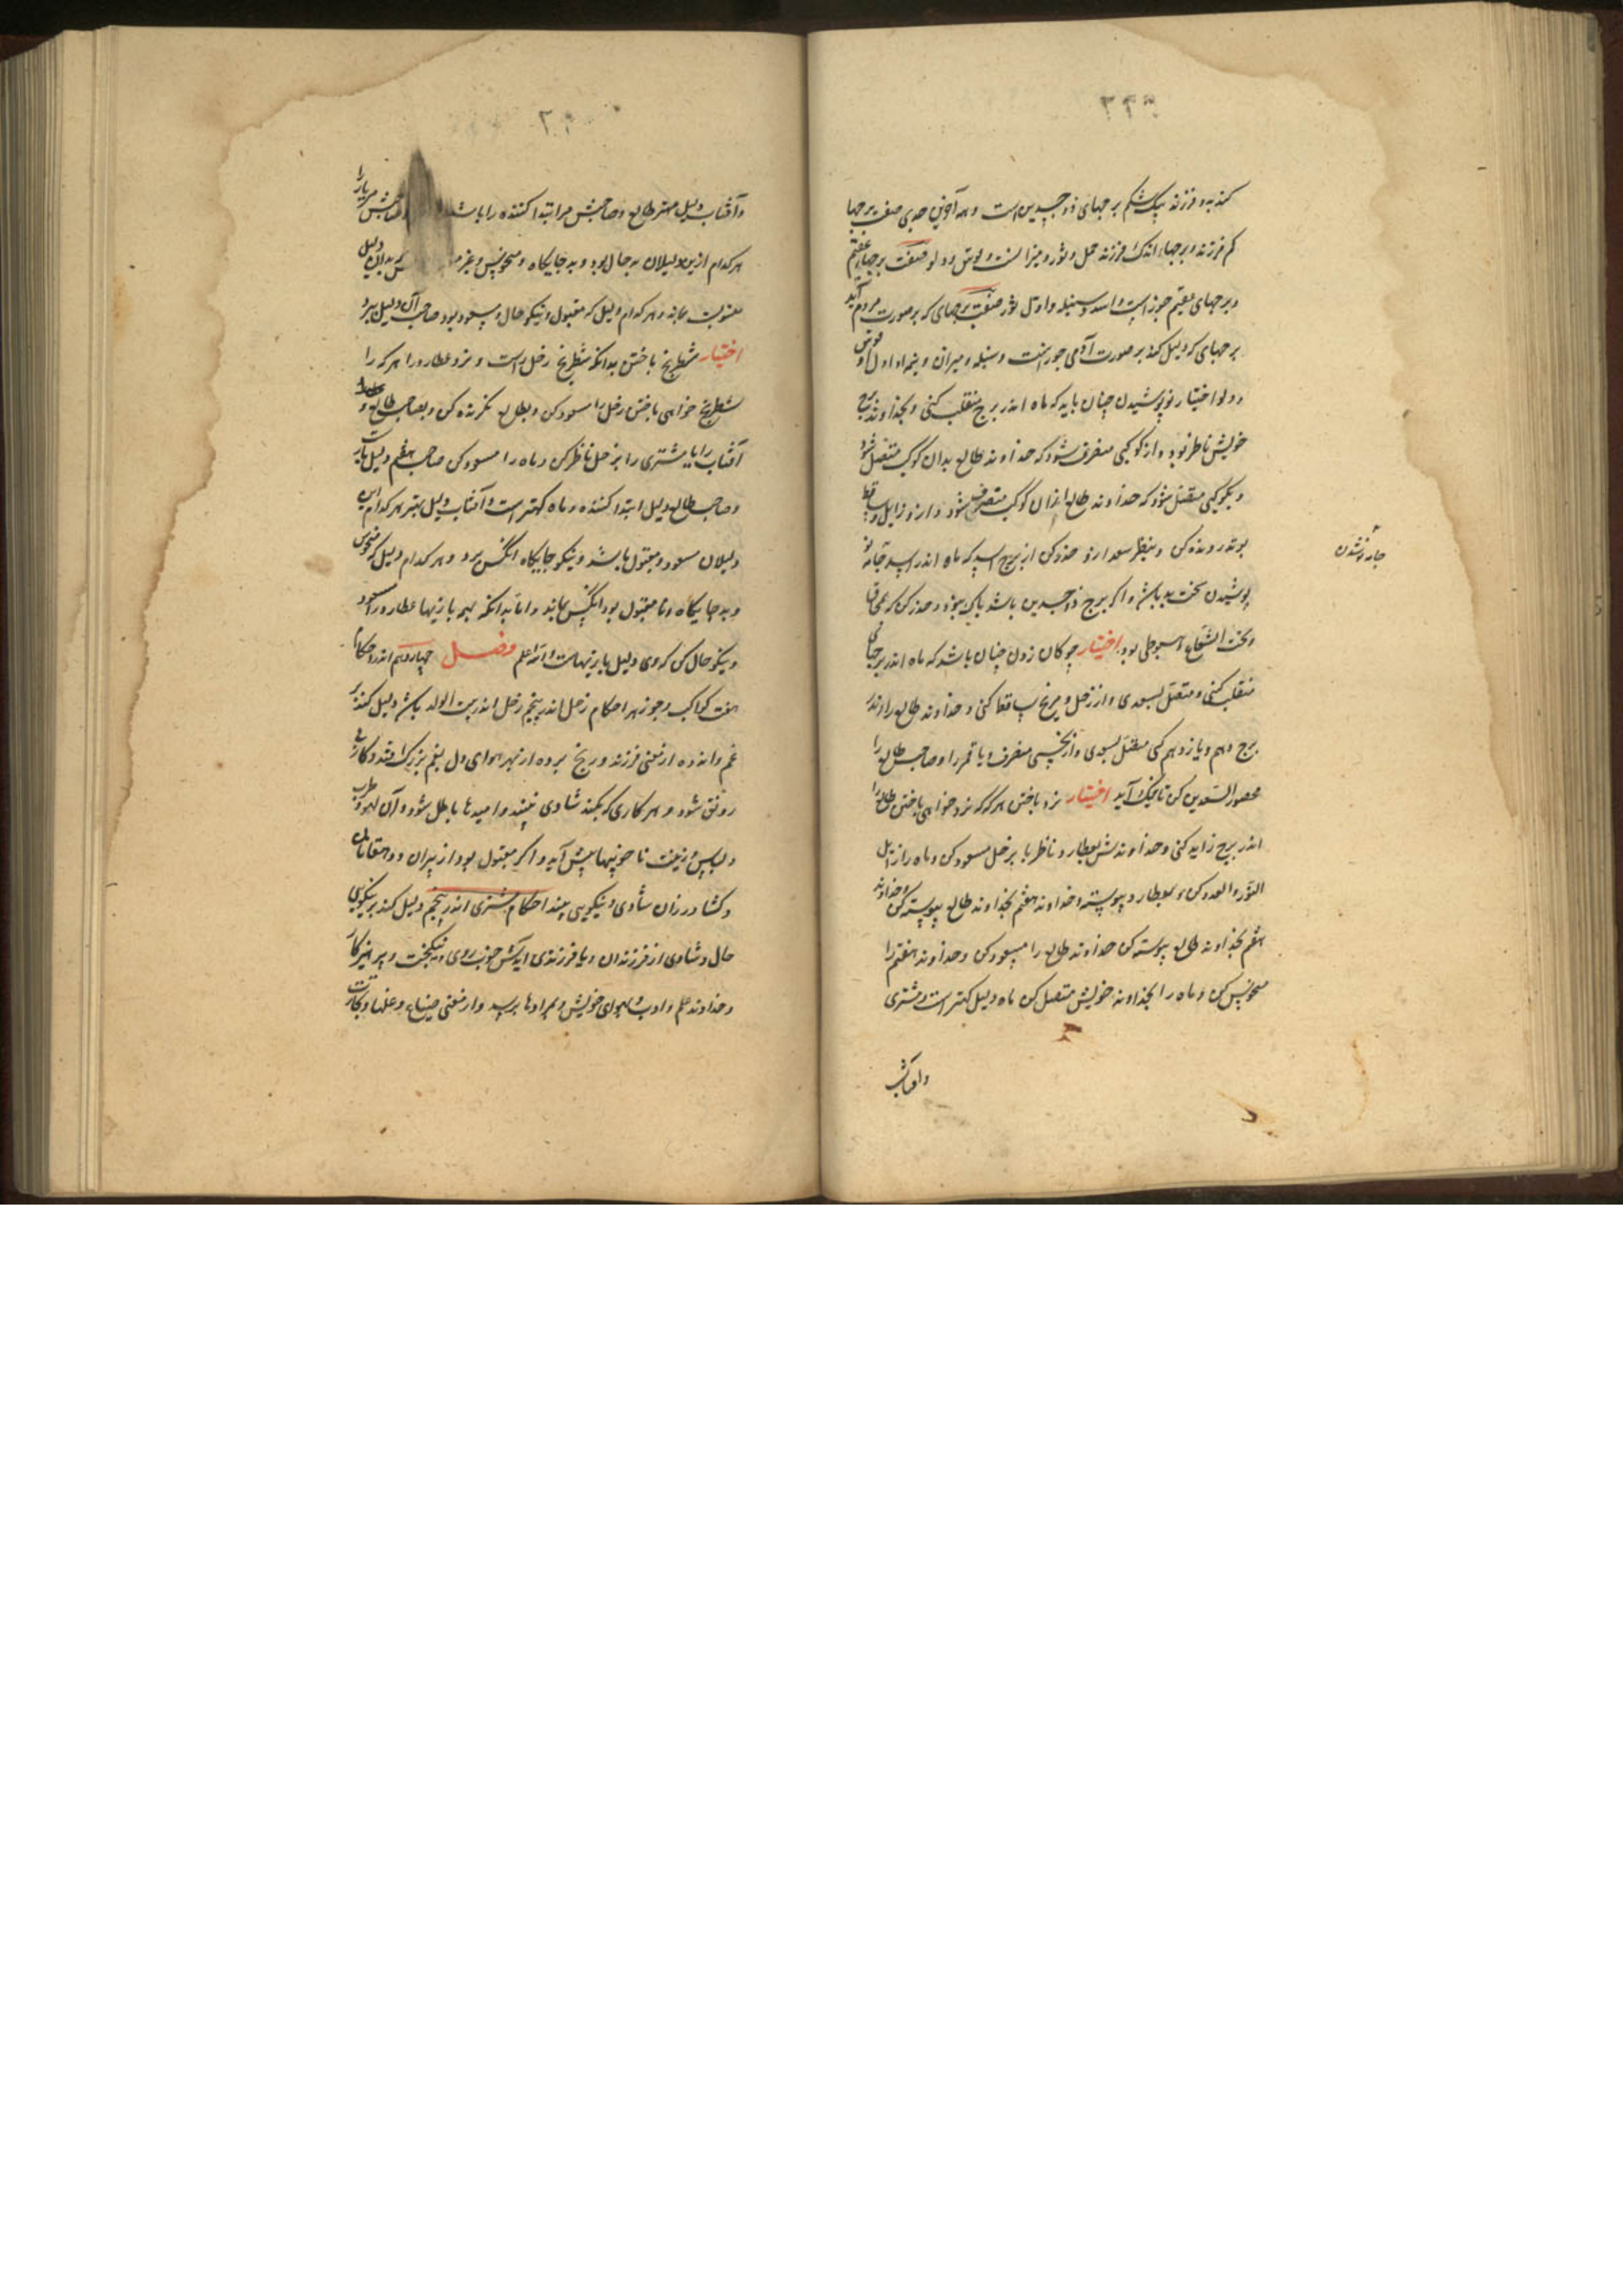 کند به دو فرزند بیک شکم برجهای ذو جسدین است و همه آخر جدی صفت برجهاء
کم فرزند و برجهاء اندک فرزند حمل و ثور و میزانست و قوس و دلو صفت برجهای عقیم
و برجهای عقیم جوزاست و اسد و سنبله و اول ثور صفت برجهای که بر صورت مردم آید
برجهای که دلیل کند بر صورت آدمی جوزاست و سنبله و میزان و نیمه اول قوس و
و دلو اختیار نو پوشیدن چنان باید که ماه اندر برج منقلب کنی و بخداوند برج
خویش ناظر بود و از کوکبی منصرف شود که خداوند طالع بدان کوکب متصل شود
و بکوکبی متصل شود که خداوند طالع از آن کوکب منصرف شود و از و زایل و ساقط
بوتد رونده کن و بنظر سعد از و حذر کن از برج اسد که ماه اندر اسد جامه نو
پوشیدن سخت بد باشد و اگر برج ذو جسدین باشد باک نبود و حذر کن که محاق
و تحت الشعاع بود اختیار چوکان زدن چنان باشد که ماه اندر برجهای
منقلب کنی و متصل بسعدی و از زحل و مریخ ساقط کنی و خداوند طالع را اندر
برج دهم و یازدهم کنی متصل بسعدی و از نحسی منصرف و یا قمر را و صاحب طالع را
محصور السعدین کن تا نیک آید اختیار نرد باختن هر که که نرد خواهی باختن طالع را
اندر برج زاید کنی و خداوندش بعطارد ناظر یا بزحل مسعود کن و ماه را زاید
النور و العدد کن و بعطارد پیوسته و خداوند هفتم بخداوند طالع پیوسته کن و خداوند
هفتم بخداوند طالع پیوسته کن خداوند طالع را مسعود کن و خداوند هفتم را
منحوس کن و ماه را بخداوند خویش متصل کن ماه دلیل کهتر است و مشتری
و آفتاب
جامه نو پوشیدن
و آفتاب دلیل مهتر طالع و صاحبش مر ابتدا کننده را باشد و صاحبش مر یار را
هر کدام ازین دلیلان بد حال بود و بد جایگاه و منحوس و غیر بدان دلیل
منسوبست بماند و هر کدام دلیل که مقبول و نیکو حال و مسعود بود صاحب آن دلیل ببرد
اختیار شطرنج باختن بدانکه شطرنج زحل راست و نرد عطارد را هر که را
شطرنج خواهی باختن زحل را مسعود کن و بطالع نگرنده کن و بصاحب طالع و
آفتاب را یا مشتری را بزحل ناظر کن و ماه را مسعود کن صاحب هفتم دلیل یار است
و صاحب طالع دلیل ابتدا کننده و ماه کهتر است و آفتاب دلیل مهتر هر کدام این
دلیلان مسعود و مقبول باشد و نیکو جایگاه آنکس برد و هر کدام دلیل که منحوس
و بد جایگاه و نا مقبول بود آنکس بماند و اما بدانکه بهمه بازیها عطارد را مسعود
و نیکو حال کن که وی دلیل بازیهاست و الله اعلم فصل چهاردهم اندر احکام
هفت کواکب و جوزهر احکام زحل اندر پنجم زحل اندر بیت الولد باشد دلیل کند بر
غم و اندوه از معنی فرزند و رنج برده از بهر هوای دل بغم بزرک افتد و کار بی
رونق شود و هر کاری که بکند شادی نبیند و امیدها باطل شود و آن لهو و طرب
و لباس و زینت ناخوبیها پیش آید و اگر مقبول بود از پیران و دهقانان
و کشاورزان شادی و نیکویی بیند احکام مشتری اندر پنجم دلیل کند بر نیکویی
حال و شادی از فرزندان و یا فرزندی آیدش خوب روی و نیکبخت و پرهیزکار
و خداوند علم و ادب و بهوای خویش و مرادها برسد و از معنی ضیاع و غلها و تجارت